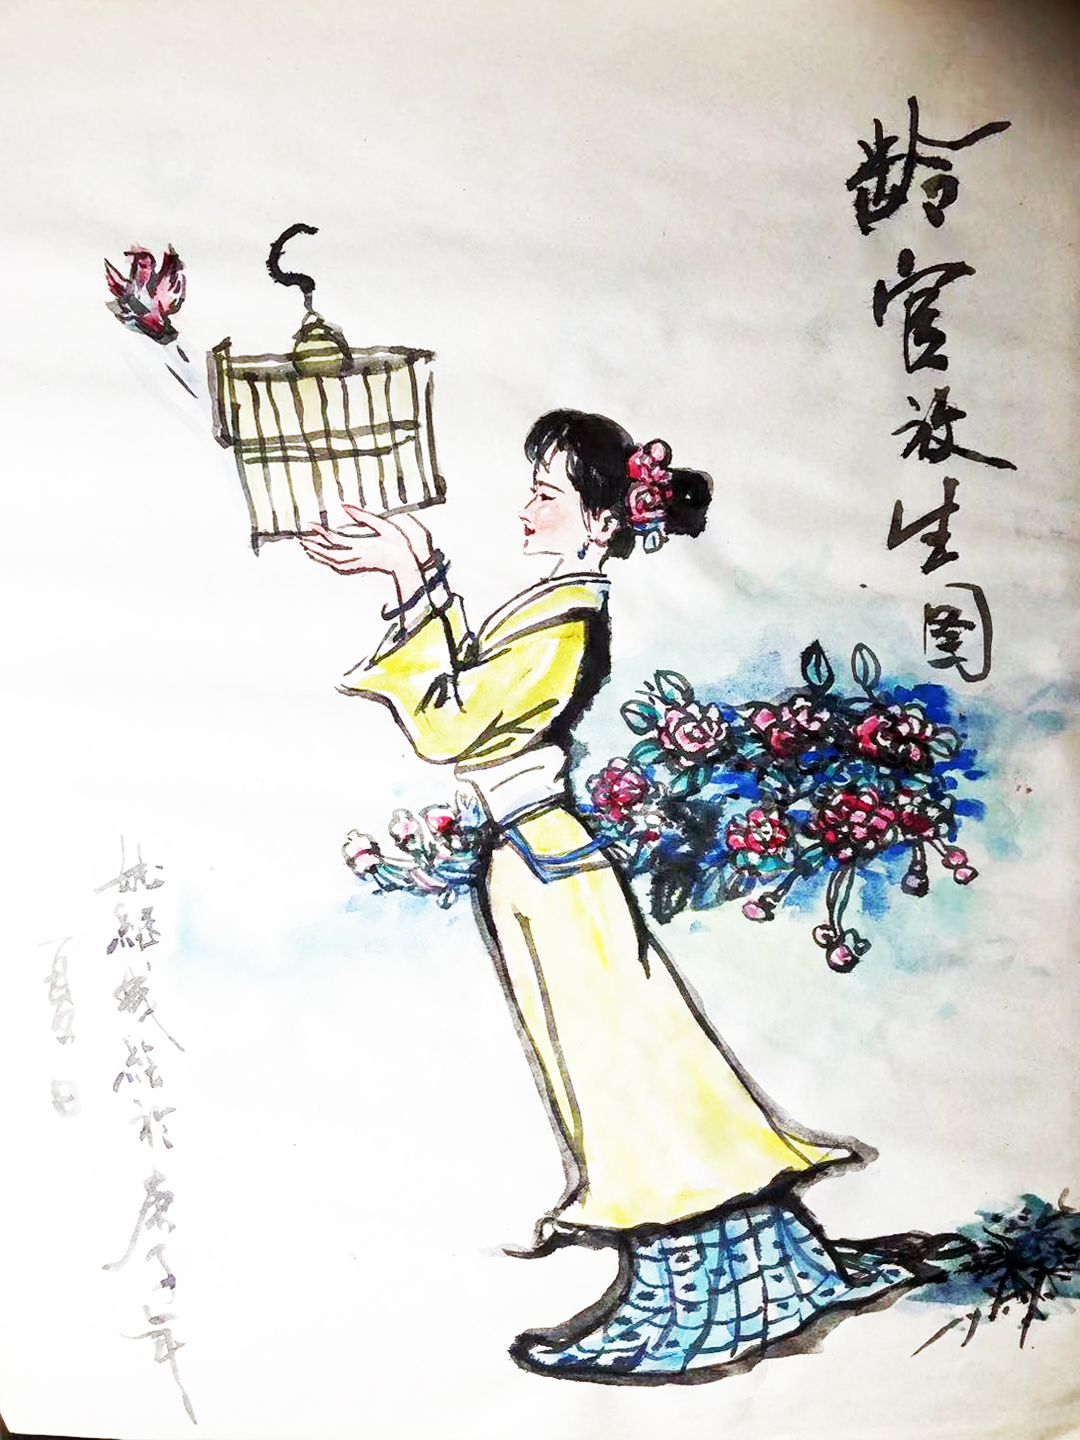 龄官放生图
姚继成绘於庚子年
夏日